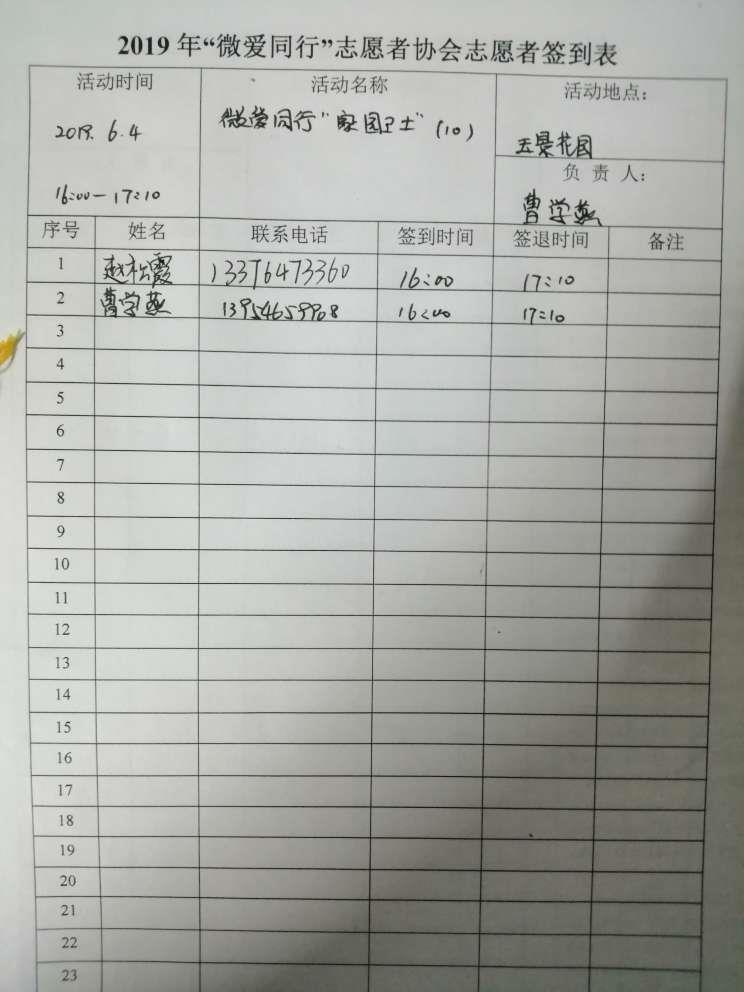 2019 年“微爱同行”志愿者协会志愿者签到表
活动时间 活动名称 活动地点：
2019. 6. 4 微爱同行“家园卫士”(10) 玉景花园
16:00—17:10 负 责 人：
曹学燕
序号 姓名 联系电话 签到时间 签退时间 备注
1 赵松霞 13376473360 16:00 17:10
2 曹学燕 13954659968 16:00 17:10
3
4
5
6
7
8
9
10
11
12
13
14
15
16
17
18
19
20
21
22
23